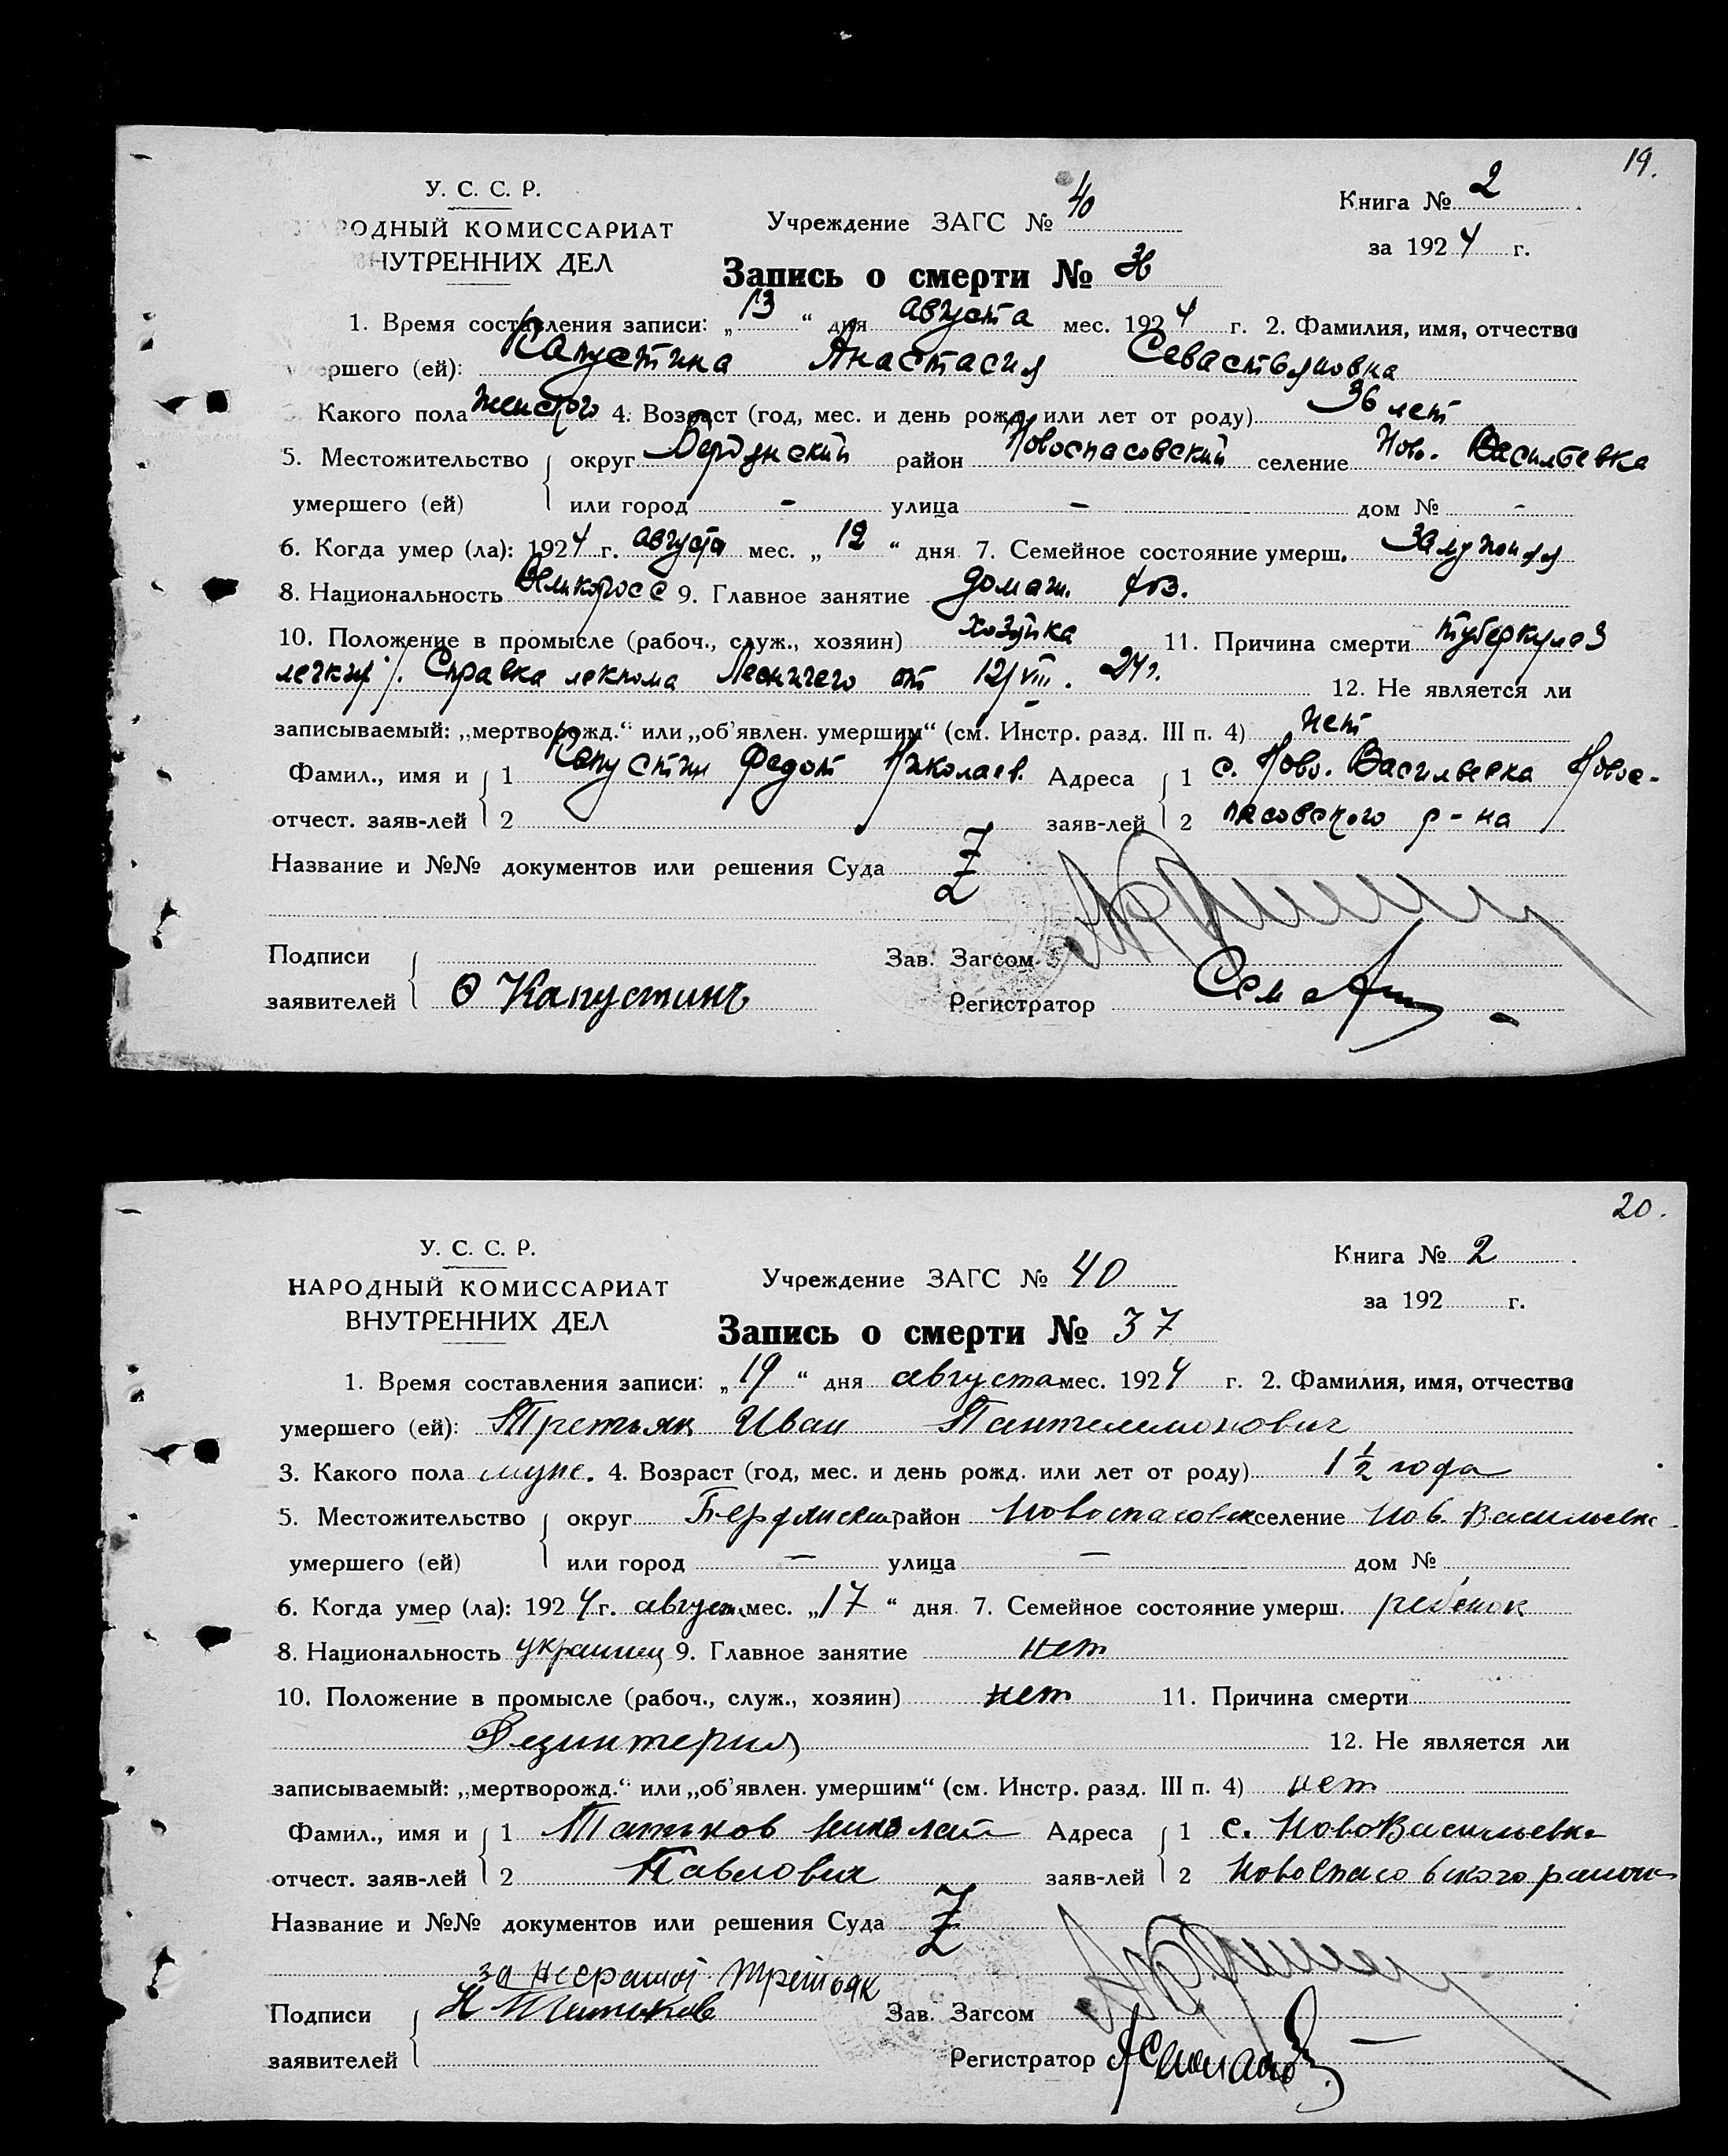 19.
У. С. С. Р.
РОДНЫЙ КОМИССАРИАТ
НУТРЕННИХ ДЕЛ
Учреждение ЗАГС № 40
Книга № 2
за 1924 г.
Запись о смерти №
1. Время составления записи: „13“ дня августа мес. 1924 г. 2. Фамилия, имя, отчество
ршего (ей): Капустина Анастасия Севастьяновна
Какого пола женского 4. Возраст (год, мес. и день рожд. или лет от роду) 36 лет
5. Местожительство округ Бердянский район Новоспасовский селение Ново. Васильевка
умершего (ей) или город - улица - дом № -
6. Когда умер (ла): 1924 г. августа мес. „12“ дня 7. Семейное состояние умерш. Замужняя
8. Национальность Великоросс 9. Главное занятие домаш. хоз.
10. Положение в промысле (рабоч., служ., хозяин) хозяйка 11. Причина смерти туберкулез
легких /. Справка лекпома Лесничего от 12/VIII. 24 г. 12. Не является ли
записываемый: „мертворожд.“ или „об'явлен. умершим“ (см. Инстр. разд. III п. 4) нет
Фамил., имя и 1 Капустин Федот Николаев. Адреса 1 с. Ново. Васильевка Новос-
отчест. заяв-лей 2 заяв-лей 2 пасовского р-на
Название и №№ документов или решения Суда Z
Подписи Зав. Загсом
заявителей Ѳ Капустинъ Регистратор
20.
У. С. С. Р.
НАРОДНЫЙ КОМИССАРИАТ
ВНУТРЕННИХ ДЕЛ
Учреждение ЗАГС № 40
Книга № 2
за 192 г.
Запись о смерти № 37
1. Время составления записи: „19“ дня августа мес. 1924 г. 2. Фамилия, имя, отчество
умершего (ей): Третьяк Иван Пантелимонович
3. Какого пола муж. 4. Возраст (год, мес. и день рожд. или лет от роду) 1 ½ года
5. Местожительство округ Бердянский район Новоспасовск селение Нов. Васильевка
умершего (ей) или город — улица — дом №
6. Когда умер (ла): 1924 г. август мес. „17“ дня 7. Семейное состояние умерш. ребенок
8. Национальность украинец 9. Главное занятие нет
10. Положение в промысле (рабоч., служ., хозяин) нет 11. Причина смерти
Дезинтерия 12. Не является ли
записываемый: „мертворожд.“ или „об'явлен. умершим“ (см. Инстр. разд. III п. 4) нет
Фамил., имя и 1 Татьков Николай Адреса 1 с. НовоВасильевка
отчест. заяв-лей 2 Павлович заяв-лей 2 Новоспасовского района
Название и №№ документов или решения Суда Z
за Третьяк
Подписи Н Зав. Загсом
заявителей Регистратор